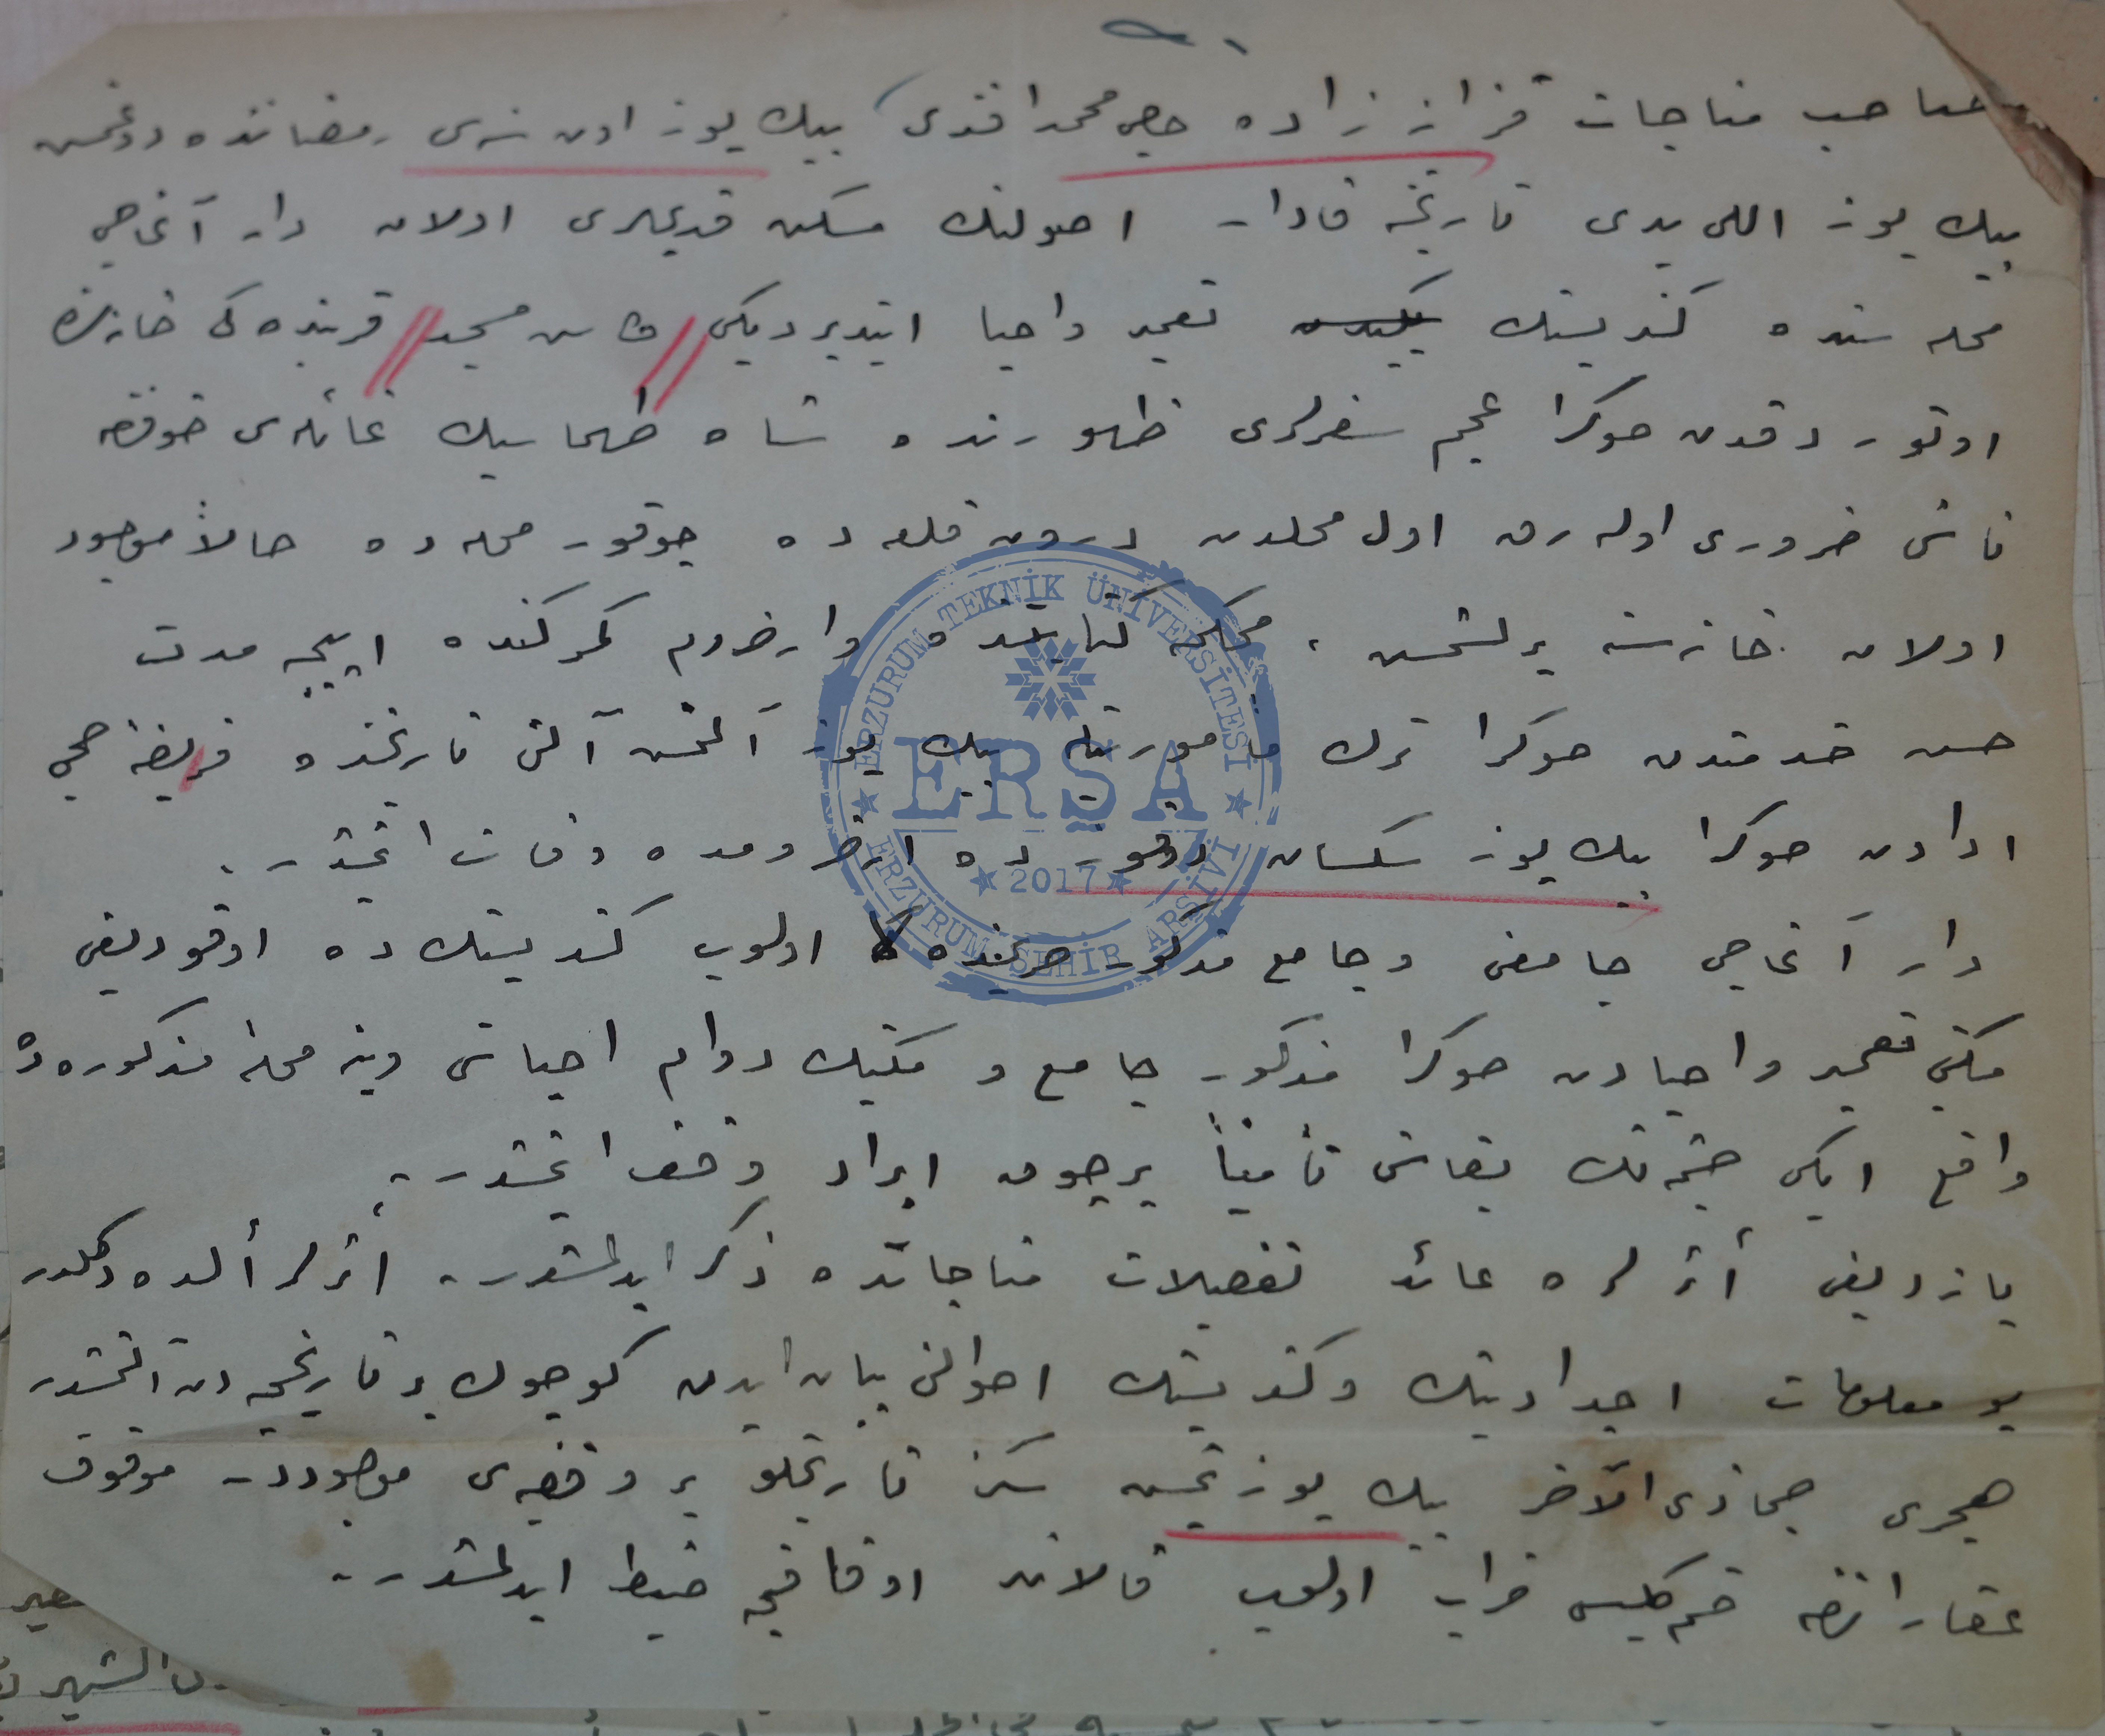 صاحب مناجات قزاز زاده حاجی محمد افندی بیك یوز اون سنه‌سی رمضاننده دوغمش
بیك یوز اللی یدی تاریخنه قادار اصولنك مسكن قدیملری اولان دار آغاجی
محله سنده كندیسنك تعمیر و احیا ایتدیردیكی مسجد قربنده كی خانه‌لرنده
اوتوردقدن صوكرا عجم سفرلری ظهورنده شاه طهماسبك غائله‌سی خوفنه
ناشی ضروری اوله‌رق اول محلدن درون قلعه ده چوقور محله ده حالاً موجود
اولان خانه‌سنه یرلشمش ، محكمه كتابتنده و ارضروم كمركنده ایپجه مدت
حسن خدمتدن صوكرا ترك مأموریتله بیك یوز آلتمش آلتی تاریخنده فریضهٔ حجی
ادادن صوكرا بیك یوز سكسان دوقوزده ارضرومده وفات ایتمشدر .
دار آغاجی جامعنی و جامع مذكور حریمنده اولوب كندیسنك ده اوقودیغی
مكتبی تعمیر و احیادن صوكرا مذكور جامع و مكتبك دوام احیاسی و ینه محلهٔ مذكوره ده
واقع ایكی چشمه‌نك بقاسنی تأمیناً برچوق ایراد وقف ایتمشدر .
یازدیغی أثرلره عائد تفصیلات مناجاتده ذكر ایدلمشدر . أثرلر ألده دكلدر
بو معلومات اجدادینك و كندیسنك احوالنی بیان ایدن كوچوك بر تاریخچه دن آلنمشدر
هجری جماذی الآخر بیك یوز یتمش سكز تاریخلو بر وقفیه‌سی موجوددر . موقوف
عقاراتنك قسم كلیسی خراب اولوب قالانی اوقافجه ضبط ایدلمشدر .
الشهیر
ERZURUM TEKNİK ÜNİVERSİTESİ
ERŞA
2017
ERZURUM ŞEHİR ARŞİVİ